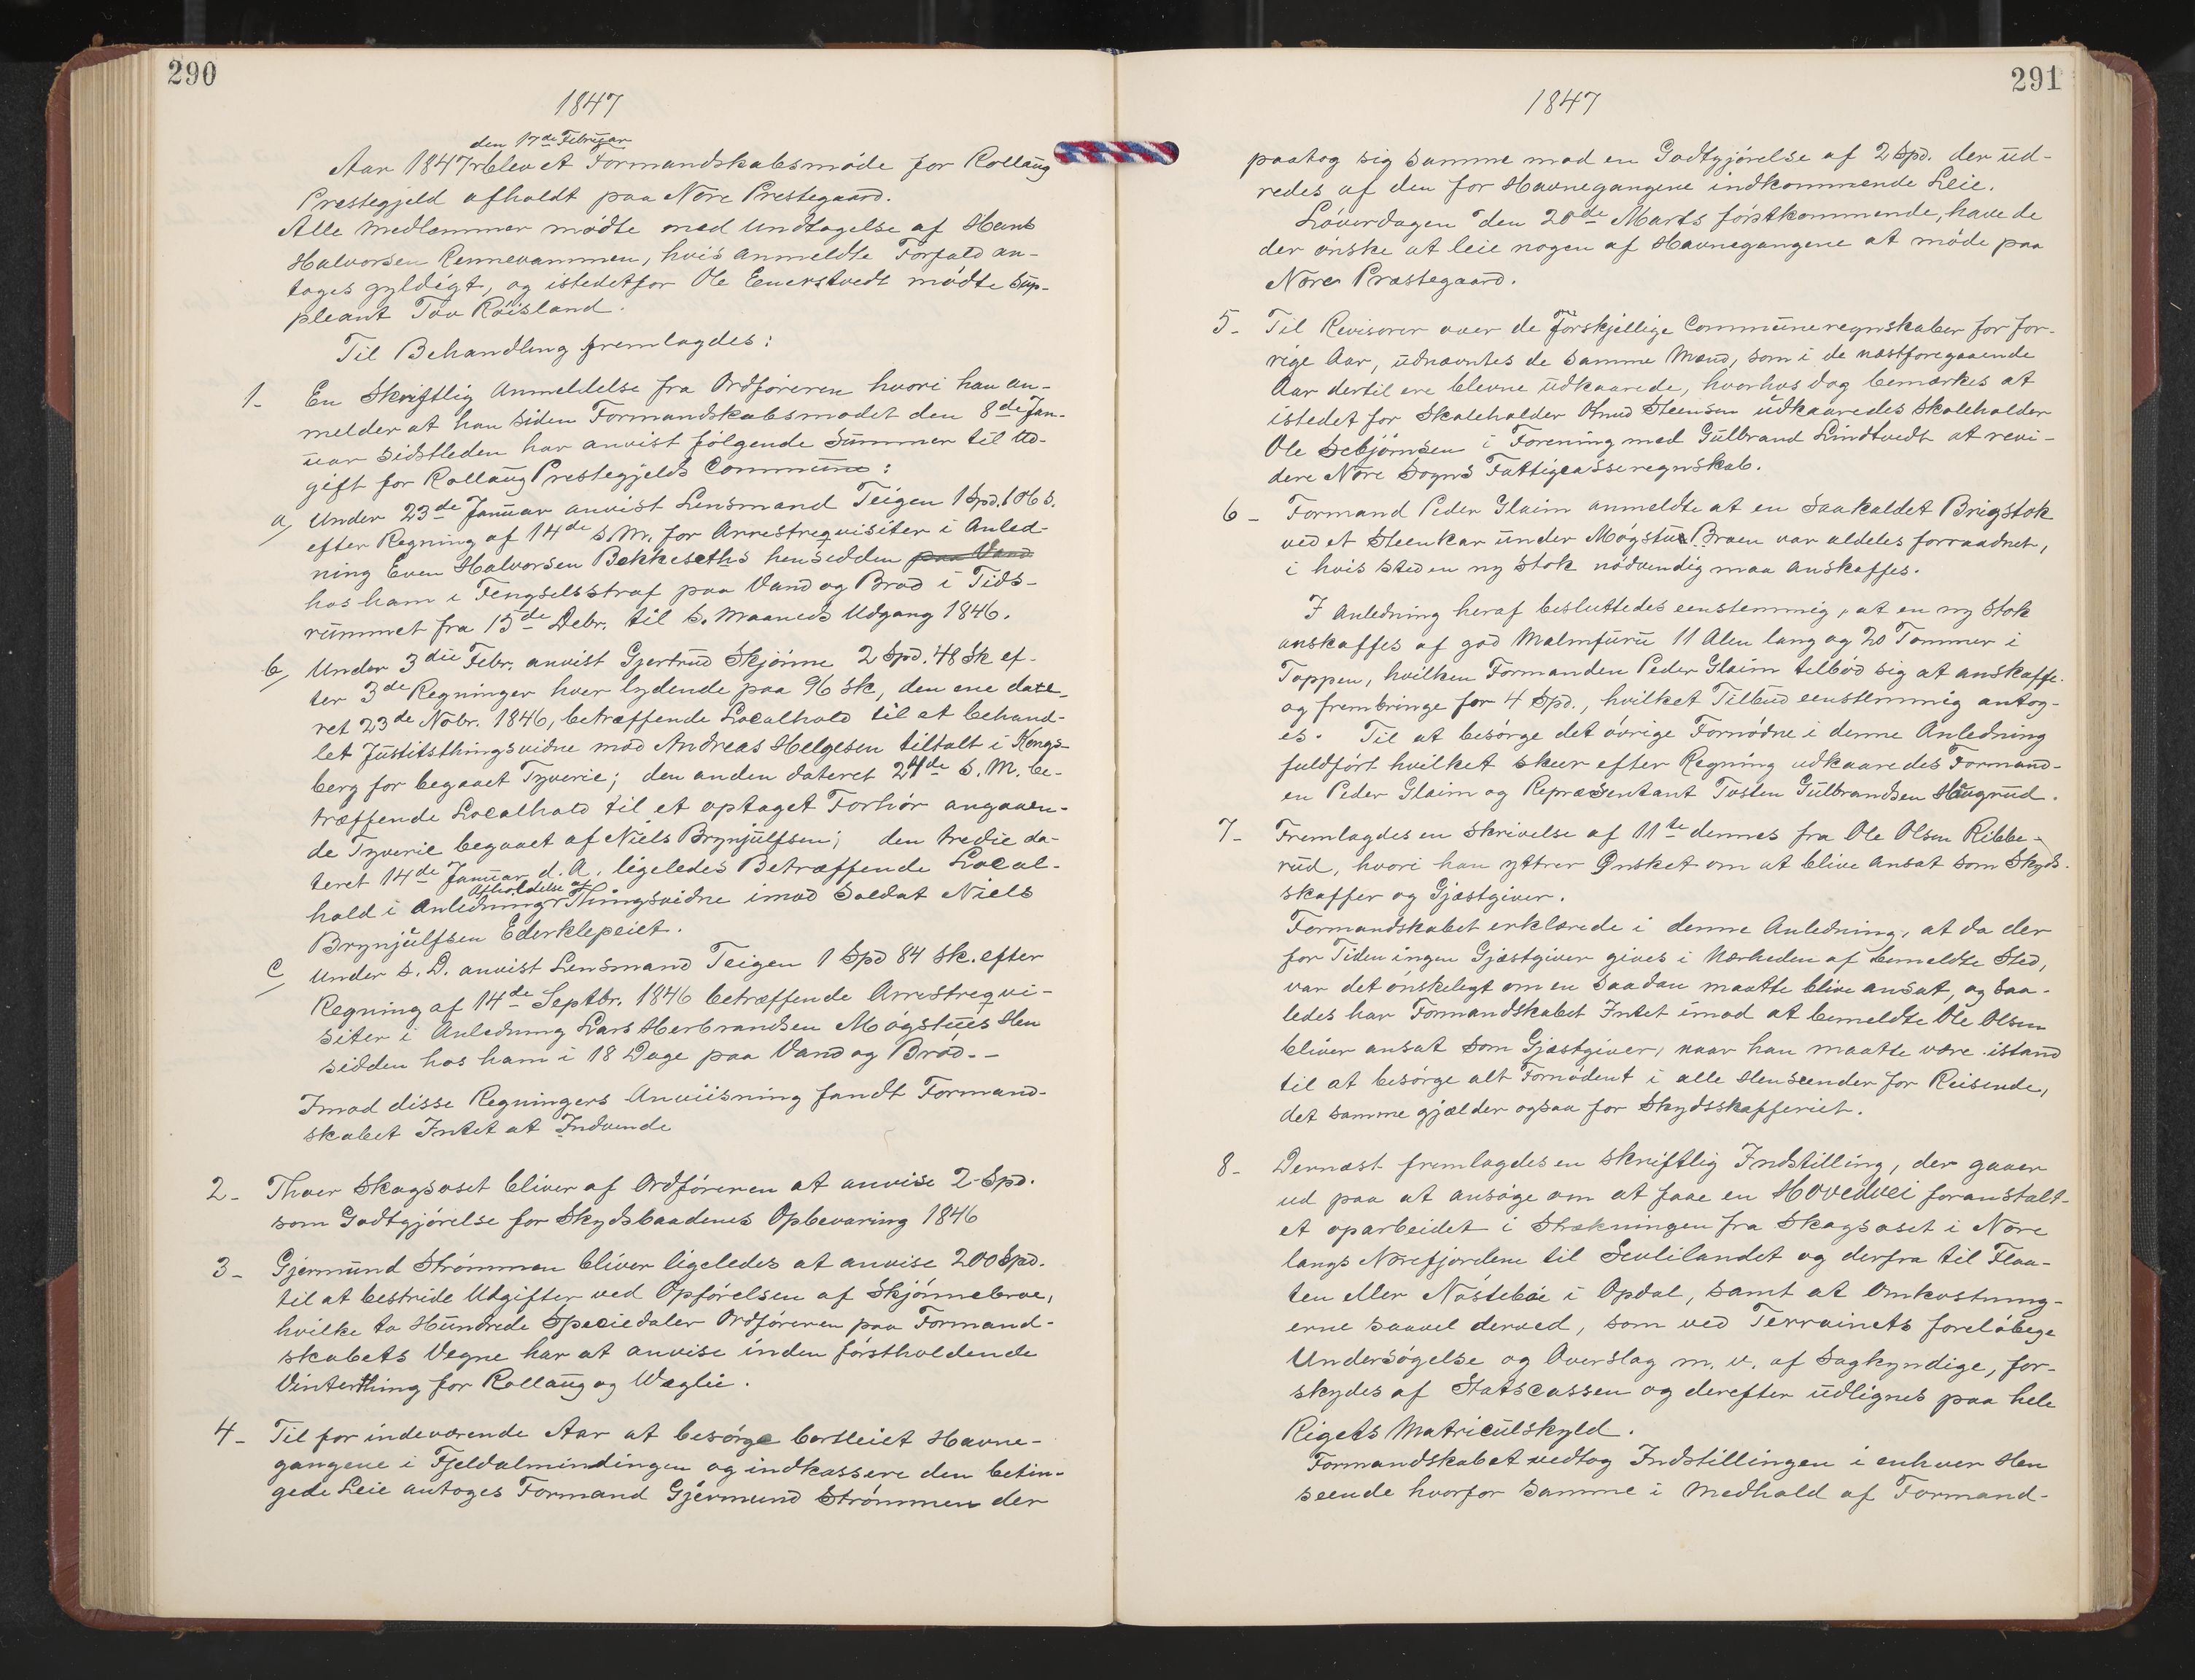 290
1847
den 17de Februar
Aar 1847 blev et Formandskabsmøde for Rollaug
Prestegjeld afholdt paa Nore Prestegaard.
Alle Medlemmer mødte med Undtagelse af Hans
Halvorsen Rennevammen, hvis anmeldte Forfald an-
toges gyldigt, og istedetfor Ole Enerstvedt mødte Sup-
pleant Tov Røisland.
Til Behandling fremlagdes:
1- En Skriftlig Anmeldelse fra Ordføreren hvori han an-
melder at han siden Formandskabsmødet den 8de Jan-
uar sidstleden har anvist følgende Summer til Ud-
gift for Rollaug Prestegjelds Commune:
a/ Under 23de Januar anvist Lensmand Teigen 1 Spd. 106 s.
efter Regning af 14de s.M. for Arrestreqvisiter i Anled-
ning Even Halvorsen Bekkeseths hensidden paa Vand
hos ham i Fengselsstraf paa Vand og Brød i Tids-
rummet fra 15de Debr. til s. Maaneds Udgang 1846.
b/ Under 3die Febr. anvist Gjertrud Skjønne 2 Spd. 48 Sk ef-
ter 3de Regninger hver lydende paa 96 sk, den ene date-
ret 23de Nobr. 1846, betræffende Localhold til et behand-
let Justitsthingsvidne mod Andreas Helgesen tiltalt i Kongs-
berg for begaaet Tyverie; den anden dateret 24de s. M. be-
træffende Localhold til et optaget Forhør angaaen-
de Tyverie begaaet af Niels Brynjulfsen; den tredie da-
teret 14de Januar d. A. ligeledes Betræffende Local-
Afholdelse af
hold i Anledning Thingsvidne imod Soldat Niels
Brynjulfsen Ederklepeiet.
c/ Under s. D. anvist Lensmand Teigen 1 Spd 84 sk. efter
Regning af 14de Septbr. 1846 betræffende Arrestreqvi-
siter i Anledning Lars Herbrandsen Møgstues Hen
sidden hos ham i 18 Dage paa Vand og Brød. -
Imod disse Regningers Anviisning fandt Formand-
skabet Intet at Indvende
2- Thoer Skagsoset bliver af Ordføreren at anvise 2 Spd.
som Godtgjørelse for Skydsbaadenes Opbevaring 1846
3- Gjermund Strømmen bliver ligeledes at anvise 200 Spd.
til at bestride Udgifter ved Opførelsen af Skjønnebroe,
hvilke to Hundrede Speciedaler Ordføreren paa Formand-
skabets Vegne har at anvise inden førstholdende
Vinterthing for Rollaug og Wæglie.
4- Til for indeværende Aar at besørge bortleiet Havne-
gangene i Fjeldalmindingen og indkassere den betin-
gede Leie antoges Formand Gjermund Strømmen der
291
1847
paatog sig samme mod en Godtgjørelse af 2 Spd. der ud-
redes af den for Havnegangene indkommende Leie.
Løverdagen den 20de Marts førstkommende, have de
der ønske at leie nogen af Havnegangene at møde paa
Nore Præstegaard.
5- Til Revisorer over de forskjellige Communeregnskaber for for-
rige Aar, udnævntes de samme Mænd, som i de næstforegaaende
Aar dertil ere blevne udkaarede, hvorhos dog bemærkes at
istedet for Skoleholder Knud Steensen udkaaredes Skoleholder
Ole Sebjørnsen i Forening med Gulbrand Lindtvedt at revi-
dere Nore Sogns Fattigcasseregnskab.
6- Formand Peder Glaim anmeldte at en saakaldet Brigstok
ved et Steenkar under Møgstue Broen var aldeles forraadnet,
i hvis sted en ny Stok nødvendig maa anskaffes.
I Anledning heraf besluttedes eenstemmig, at en ny Stok
anskaffes af god Malmfuru 11 Alen lang og 20 Tommer i
Toppen, hvilken Formanden Peder Glaim tilbød sig at anskaffe
og frembringe for 4 Spd., hvilket Tilbud eenstemmig antog-
es. Til at besørge det øvrige Fornødne i denne Anledning
fuldført hvilket skeer efter Regning udkaaredes Formand-
en Peder Glaim og Repræsentant Tosten Gulbrandsen Haugrud.
7- Fremlagdes en Skrivelse af 11te dennes fra Ole Olsen Ribbe-
rud, hvori han yttrer Ønsket om at blive ansat som Skyds-
skaffer og Gjæstgiver.
Formandskabet erklærede i denne Anledning, at da der
for Tiden ingen Gjæstgiver gives i Nærheden af bemeldte Sted,
var det ønskeligt om en Saadan maatte blive ansat, og saa-
ledes har Formandskabet Intet imod at bemeldte Ole Olsen
bliver ansat som Gjæstgiver, naar han maatte være istand
til at besørge alt Fornødent i alle Henseender for Reisende,
det samme gjælder ogsaa for Skydsskafferiet.
8- Dernæst fremlagdes en skriftlig Indstilling, der gaaer
ud paa at ansøge om at faae en Hovedvei foranstalt-
et oparbeidet i Strækningen fra Skagsoset i Nore
langs Norefjordene til Sevlilandet og derfra til Flaa-
ten eller Nøstebøe i Opdal, samt at Omkostning-
erne saavel derved, som ved Terrainets foreløbige
Undersøgelse og Overslag m. v. af Sagkyndige, for-
skydes af Statscassen og derefter udlignes paa hele
Rigets Matriculskyld.
Formandskabet vedtog Indstillingen i enhver Hen
seende hvorfor samme i Medhold af Formand-